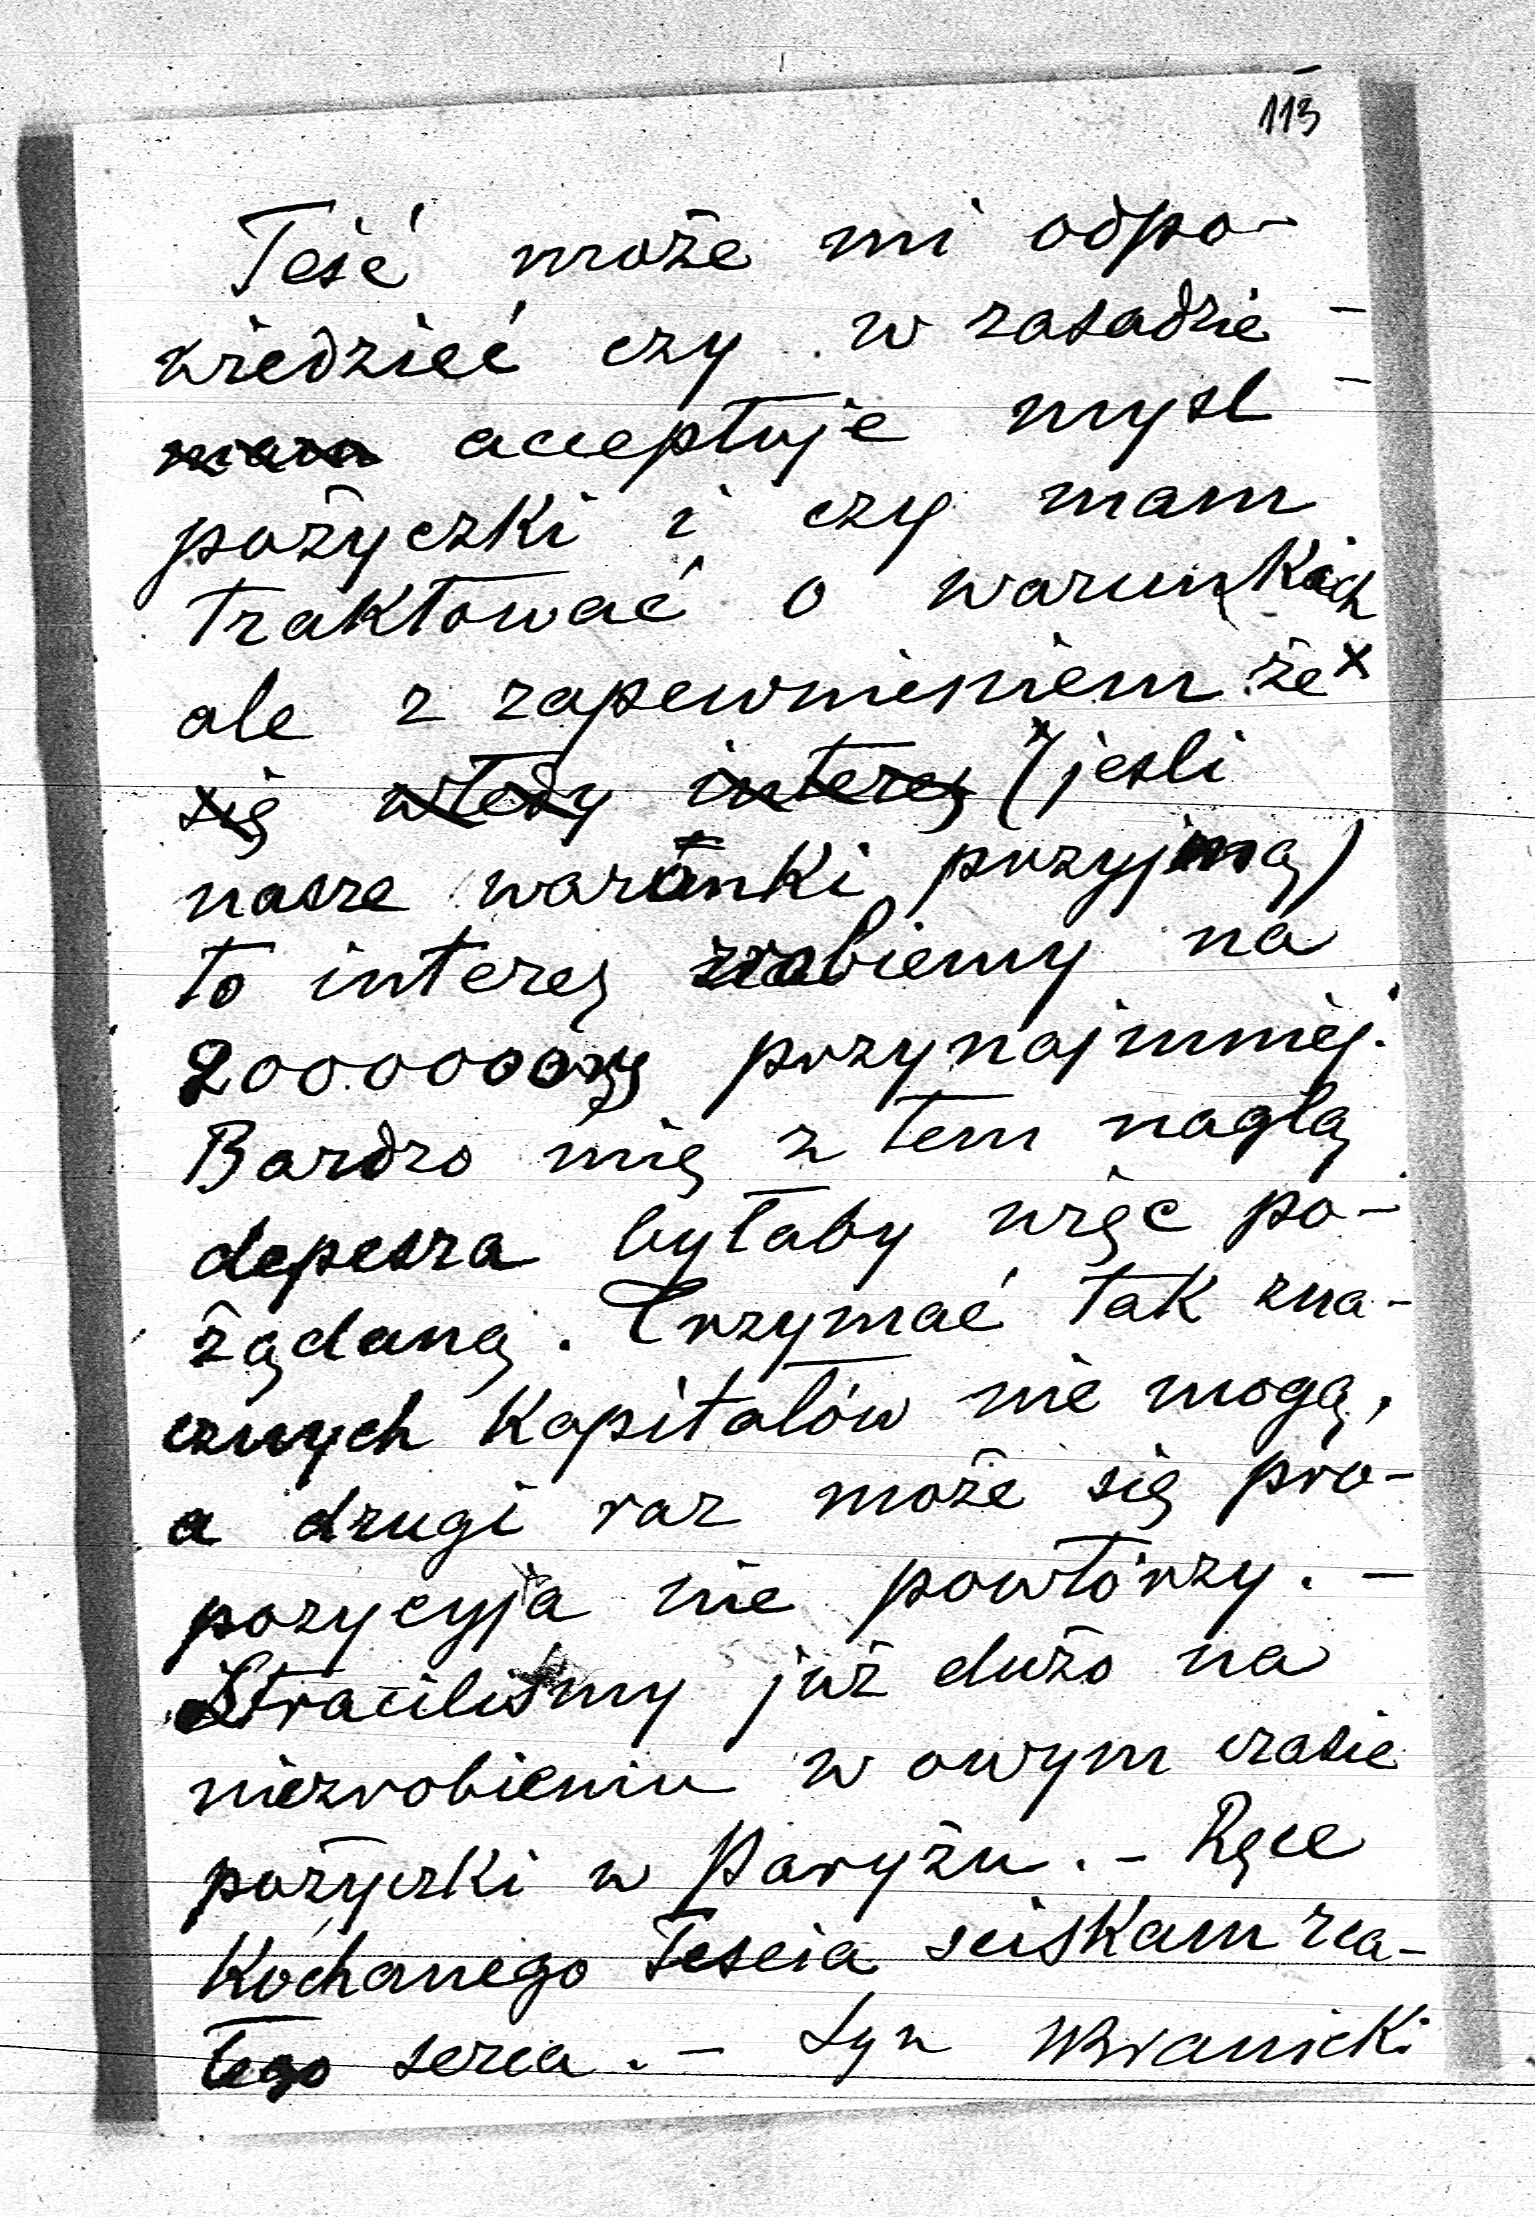 113
Teść może mi odpo-
wiedzieć czy w zasadzie -
mam acceptuje mysl -
pożyczki i czy mam
traktować o warunkach
ale z zapewnieniem że x
się wtedy interes x (jesli
nasze warunki przyjmą)
to interes zrobiemy na
2000000 przynajmniej.
Bardzo mię z tem naglą
depesza byłaby więc po-
żądaną. Trzymać tak zna-
cznych kapitałów nie mogą,
a drugi raz może się pro-
pozycyja nie powtórzy. -
Straciliśmy już dużo na
niezrobieniu w owym czasie
pożyczki w Paryżu. - Ręce
Kochanego Teścia sciskam zca-
łego serca. - Syn WBranicki